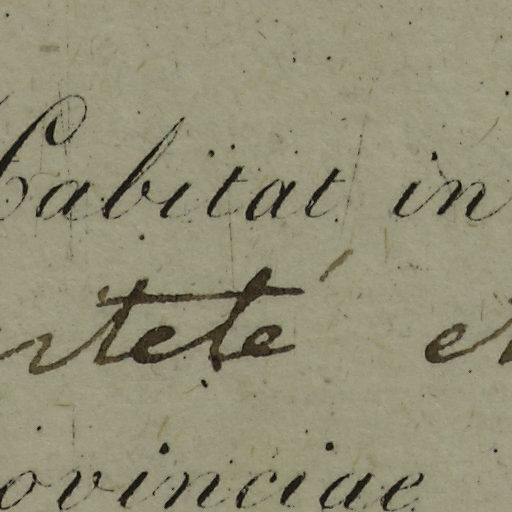 Habitat in
rteté e
ovinciae